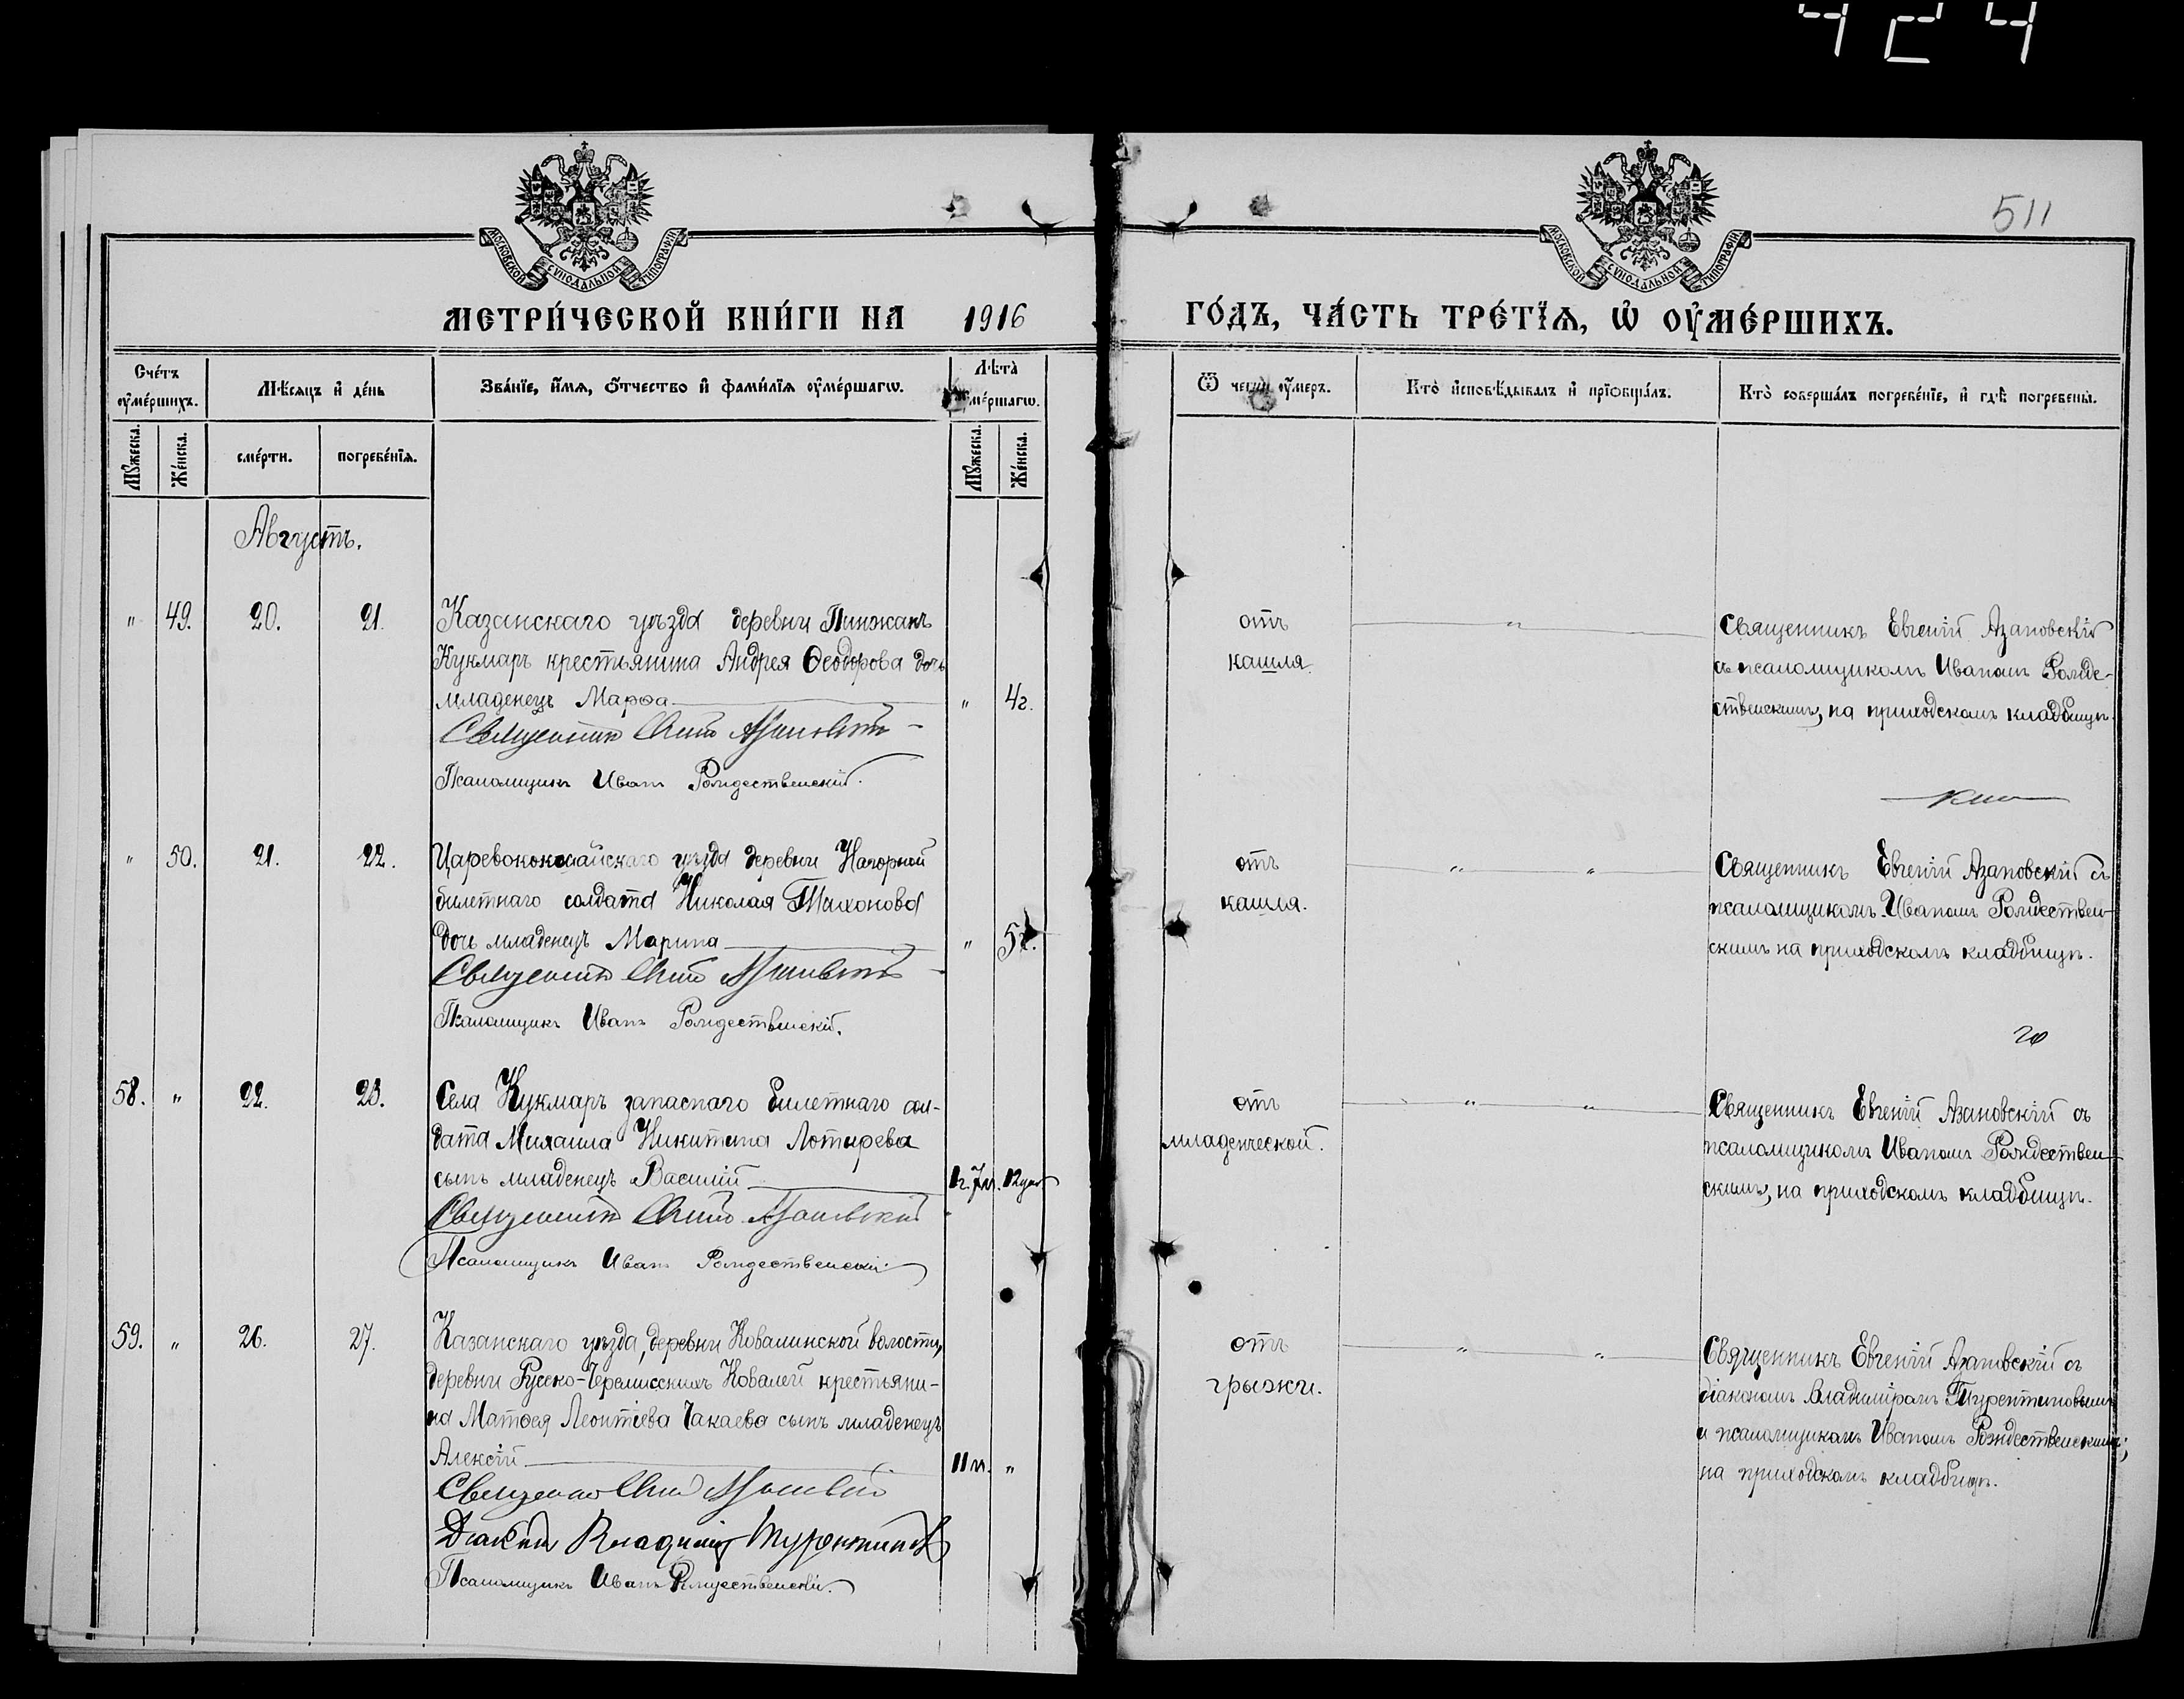 424
511
МОСКОВСКОЙ СѴНОДАЛЬНОЙ ТИПОГРАФІИ
МОСКОВСКОЙ СѴНОДАЛЬНОЙ ТИПОГРАФІИ
МЕТРИ́ЧЕСКОЙ КНИ́ГИ НА 1916 ГО́ДЪ, ЧА́СТЬ ТРЕ́ТЇѦ, Ѡ҆ ОУ҆МЕ́РШИХЪ.
Сче́тъ оу҆ме́ршихъ.
Мѣ́сѧцъ и҆ де́нь
Зва́нїе, и҆́мѧ, ѻ҆́тчество и҆ фами́лїѧ оу҆ме́ршагѡ.
Лѣта̀ оу҆ме́ршагѡ.
Ѿ чегѡ̀ оу҆́меръ.
Кто̀ и҆сповѣ́дывалъ и҆ прїѡбща́лъ.
Кто̀ соверша́лъ погребе́нїе, и҆ гдѣ̀ погребены̀.
Мꙋ́жеска.
Же́нска.
сме́рти.
погребе́нїѧ.
Мꙋ́жеска.
Же́нска.
Августъ.
" 49. 20. 21. Казанскаго уѣзда деревни Пинжанъ
Кукмаръ крестьянина Андрея Ѳеодорова дочь
младенецъ Марѳа " 4г.
Священникъ Евгеній Азановскій
Псаломщикъ Иванъ Рождественскій.
отъ
кашля.
"
Священникъ Евгеній Азановскій
съ псаломщикомъ Иваномъ Рожде-
ственскимъ, на приходскомъ кладбищѣ.
" 50. 21. 22. Царевококшайскаго уѣзда деревни Нагорной
билетнаго солдата Николая Тихонова
дочь младенецъ Марина " 5г.
Священникъ Евгеній Азановскій
Псаломщикъ Иванъ Рождественскій.
отъ
кашля.
" "
Священникъ Евгеній Азановскій съ
псаломщикомъ Иваномъ Рождествен-
скимъ на приходскомъ кладбищѣ.
58. " 22. 23. Села Кукмаръ запаснаго билетнаго сол-
дата Михаила Никитина Лотырева
сынъ младенецъ Василій 1г. 7м. 12 дней
Священникъ Евгеній Азановскій
Псаломщикъ Иванъ Рождественскій
отъ
младенческой.
" "
Священникъ Евгеній Азановскій съ
псаломщикомъ Иваномъ Рождествен-
скимъ, на приходскомъ кладбищѣ.
59. " 26. 27. Казанскаго уѣзда, деревни Ковалинской волости,
деревни Русско-Черемисскихъ Ковалей крестьяни-
на Матѳея Леонтіева Чакаева сынъ младенецъ
Алексій 11 м. "
Священникъ Евгеній Азановскій
Діаконъ Владиміръ Турентиновъ
Псаломщикъ Иванъ Рождественскій.
отъ
грыжи.
" "
Священникъ Евгеній Азановскій съ
діакономъ Владиміромъ Турентиновымъ
и псаломщикомъ Иваномъ Рождественскимъ;
на приходскомъ кладбищѣ.